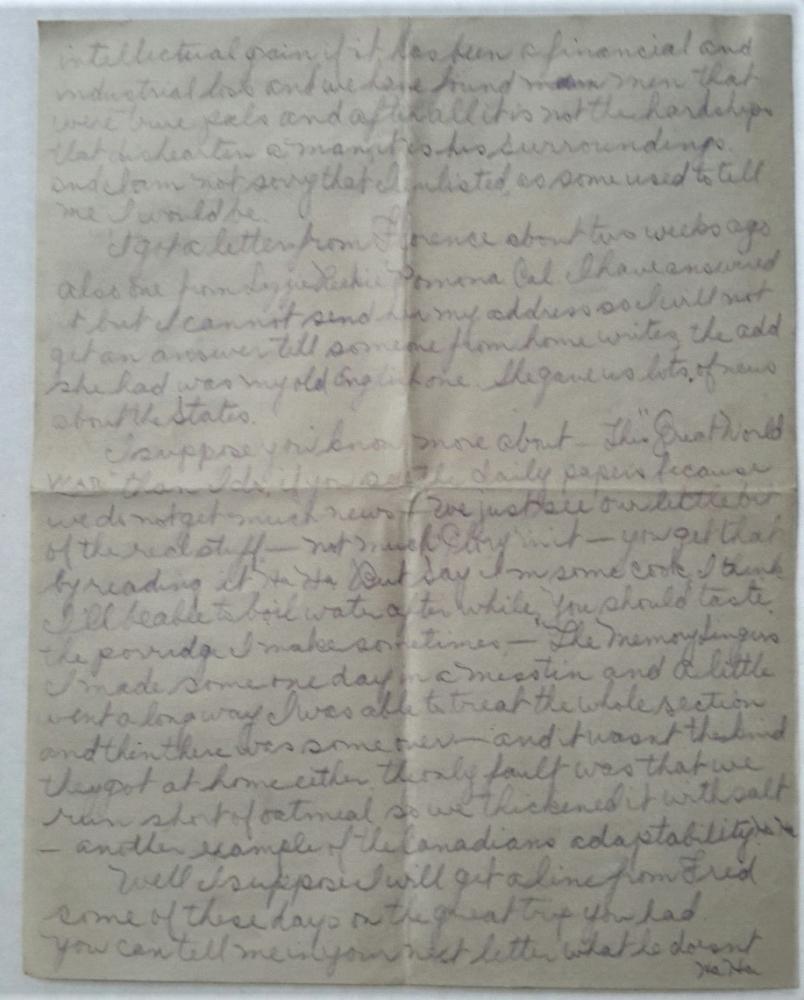 intellectual gain if it has been a financial and
industrial loss and we have found men that
were true pals and after all it is not the hardships
that dishearten a man it is his surroundings.
and I am not sorry that I enlisted, as some used to tell
me I would be.
I got a letter from Florence about two weeks ago
also one from Lizzie Pomona Cal. I have answered
it but I cannot send her my address so I will not
get an answer till someone from home writes, the add
she had was my old English one. She gave us lots of news
about the States.
I suppose you know more about — This "Great World
War" than I do, if you see the daily papers because
we do not get much news — we just see our little bit
of the real stuff — not much Glory in it — you get that
by reading it Ha Ha. But say I'm some cook, I think
I'll be able to boil water after while, you should taste
the porridge I make sometimes — "The Memory Lingers
I made some one day in a messtin and a little
went a long way I was able to treat the whole section
and then there was some over — and it wasn't the kind
they got at home either. the only fault was that we
run short of oatmeal so we thickened it with salt
— another example of the Canadians adaptability Ha Ha
Well I suppose I will get a line from Fred
some of these days on the great trip you had
You can tell me in your next letter what he doesnt
Ha Ha